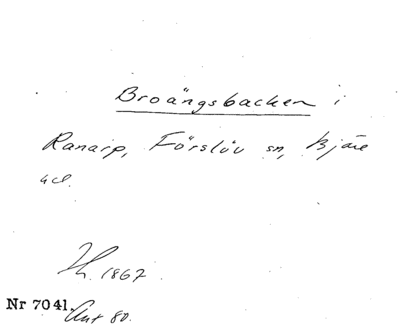 Broängsbacken i
Ranarp, Förslöv sn, Bjäre
hd.
1867.
Nr 7041.
Ant 80.